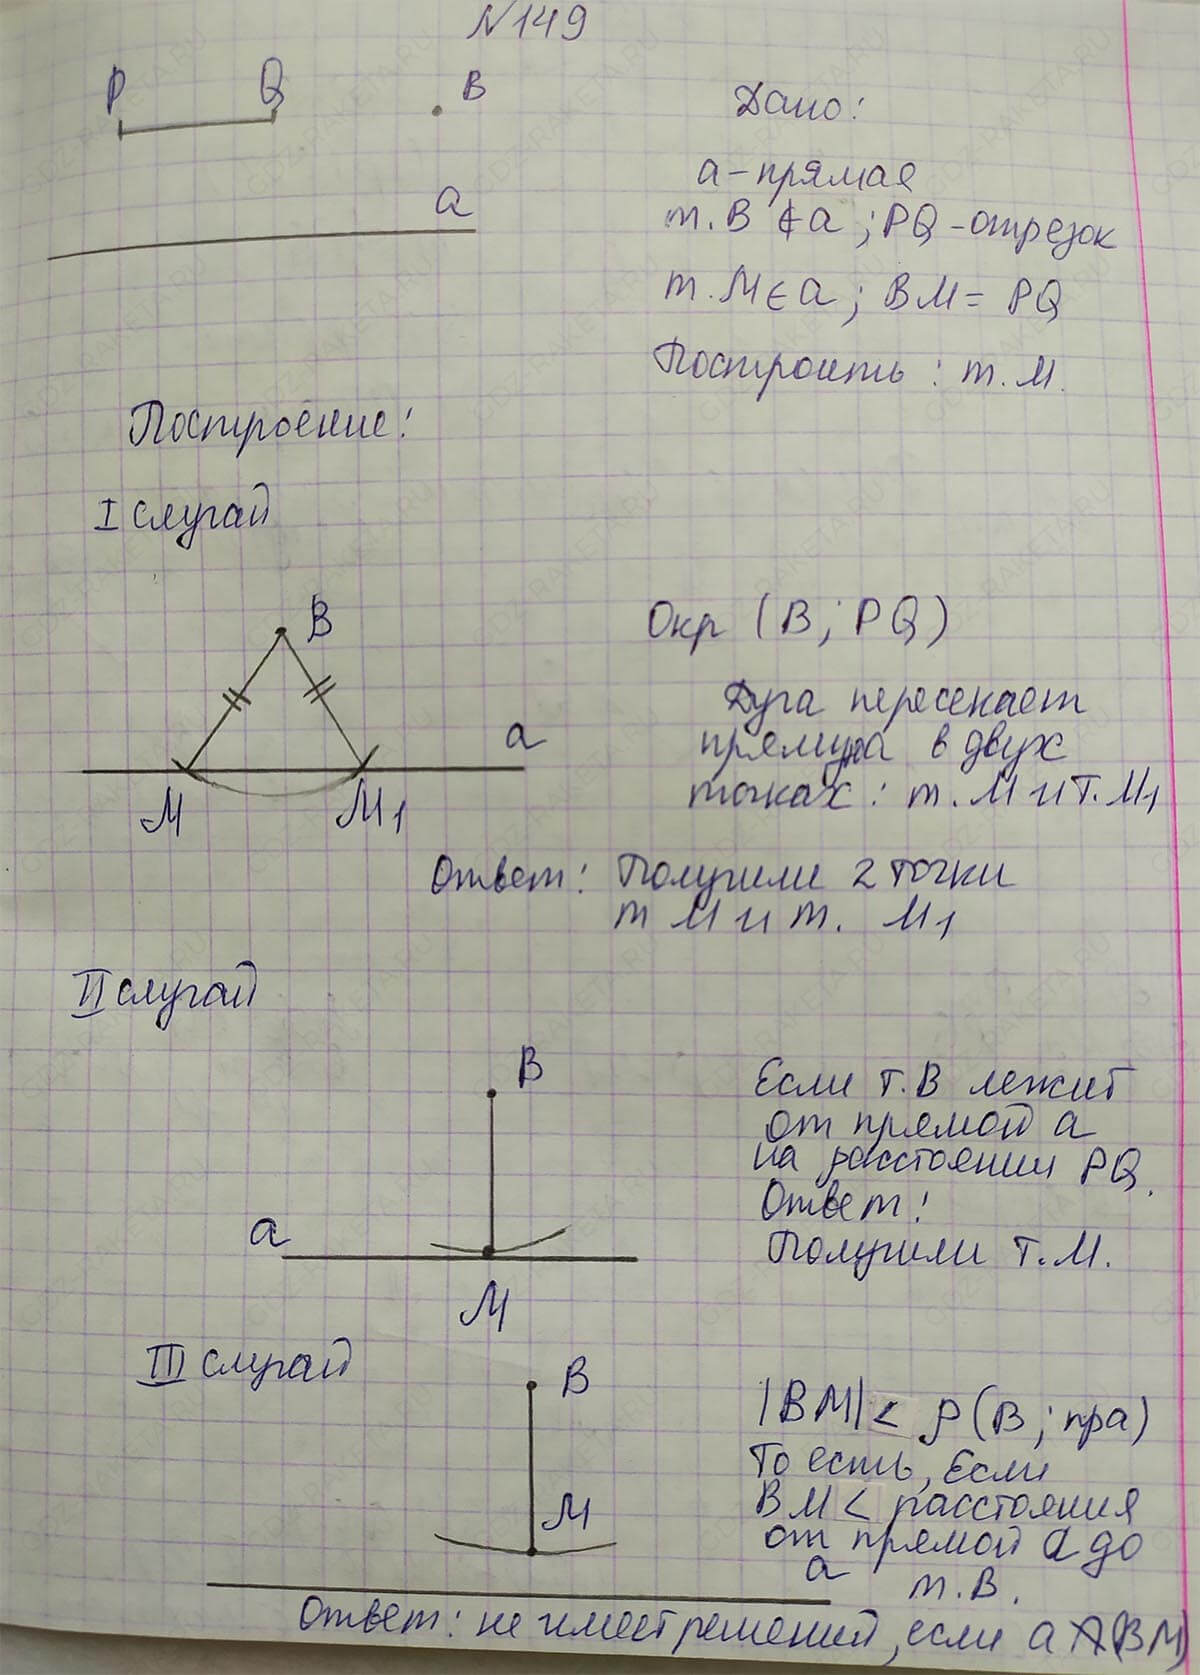 N149
P Q B
a
Дано:
a - прямая
т. B ∉ a ; PQ - отрезок
т. M ∈ a ; BM = PQ
Построить : т. M.
Построение:
I случай
B
a
M M₁
Окр (B ; PQ)
Дуга пересекает
прямую a в двух
точках : т. M и т. M₁
Ответ: Получили 2 точки
т M и т. M₁
II случай
B
a
M
Если т. B лежит
от прямой a
на расстоянии PQ.
Ответ:
Получили т. M.
III случай
B
M
a
|BM| < ρ (B ; пр a)
То есть, если
BM < расстояния
от прямой a до
т. B.
Ответ: не имеет решений, если a (BM)